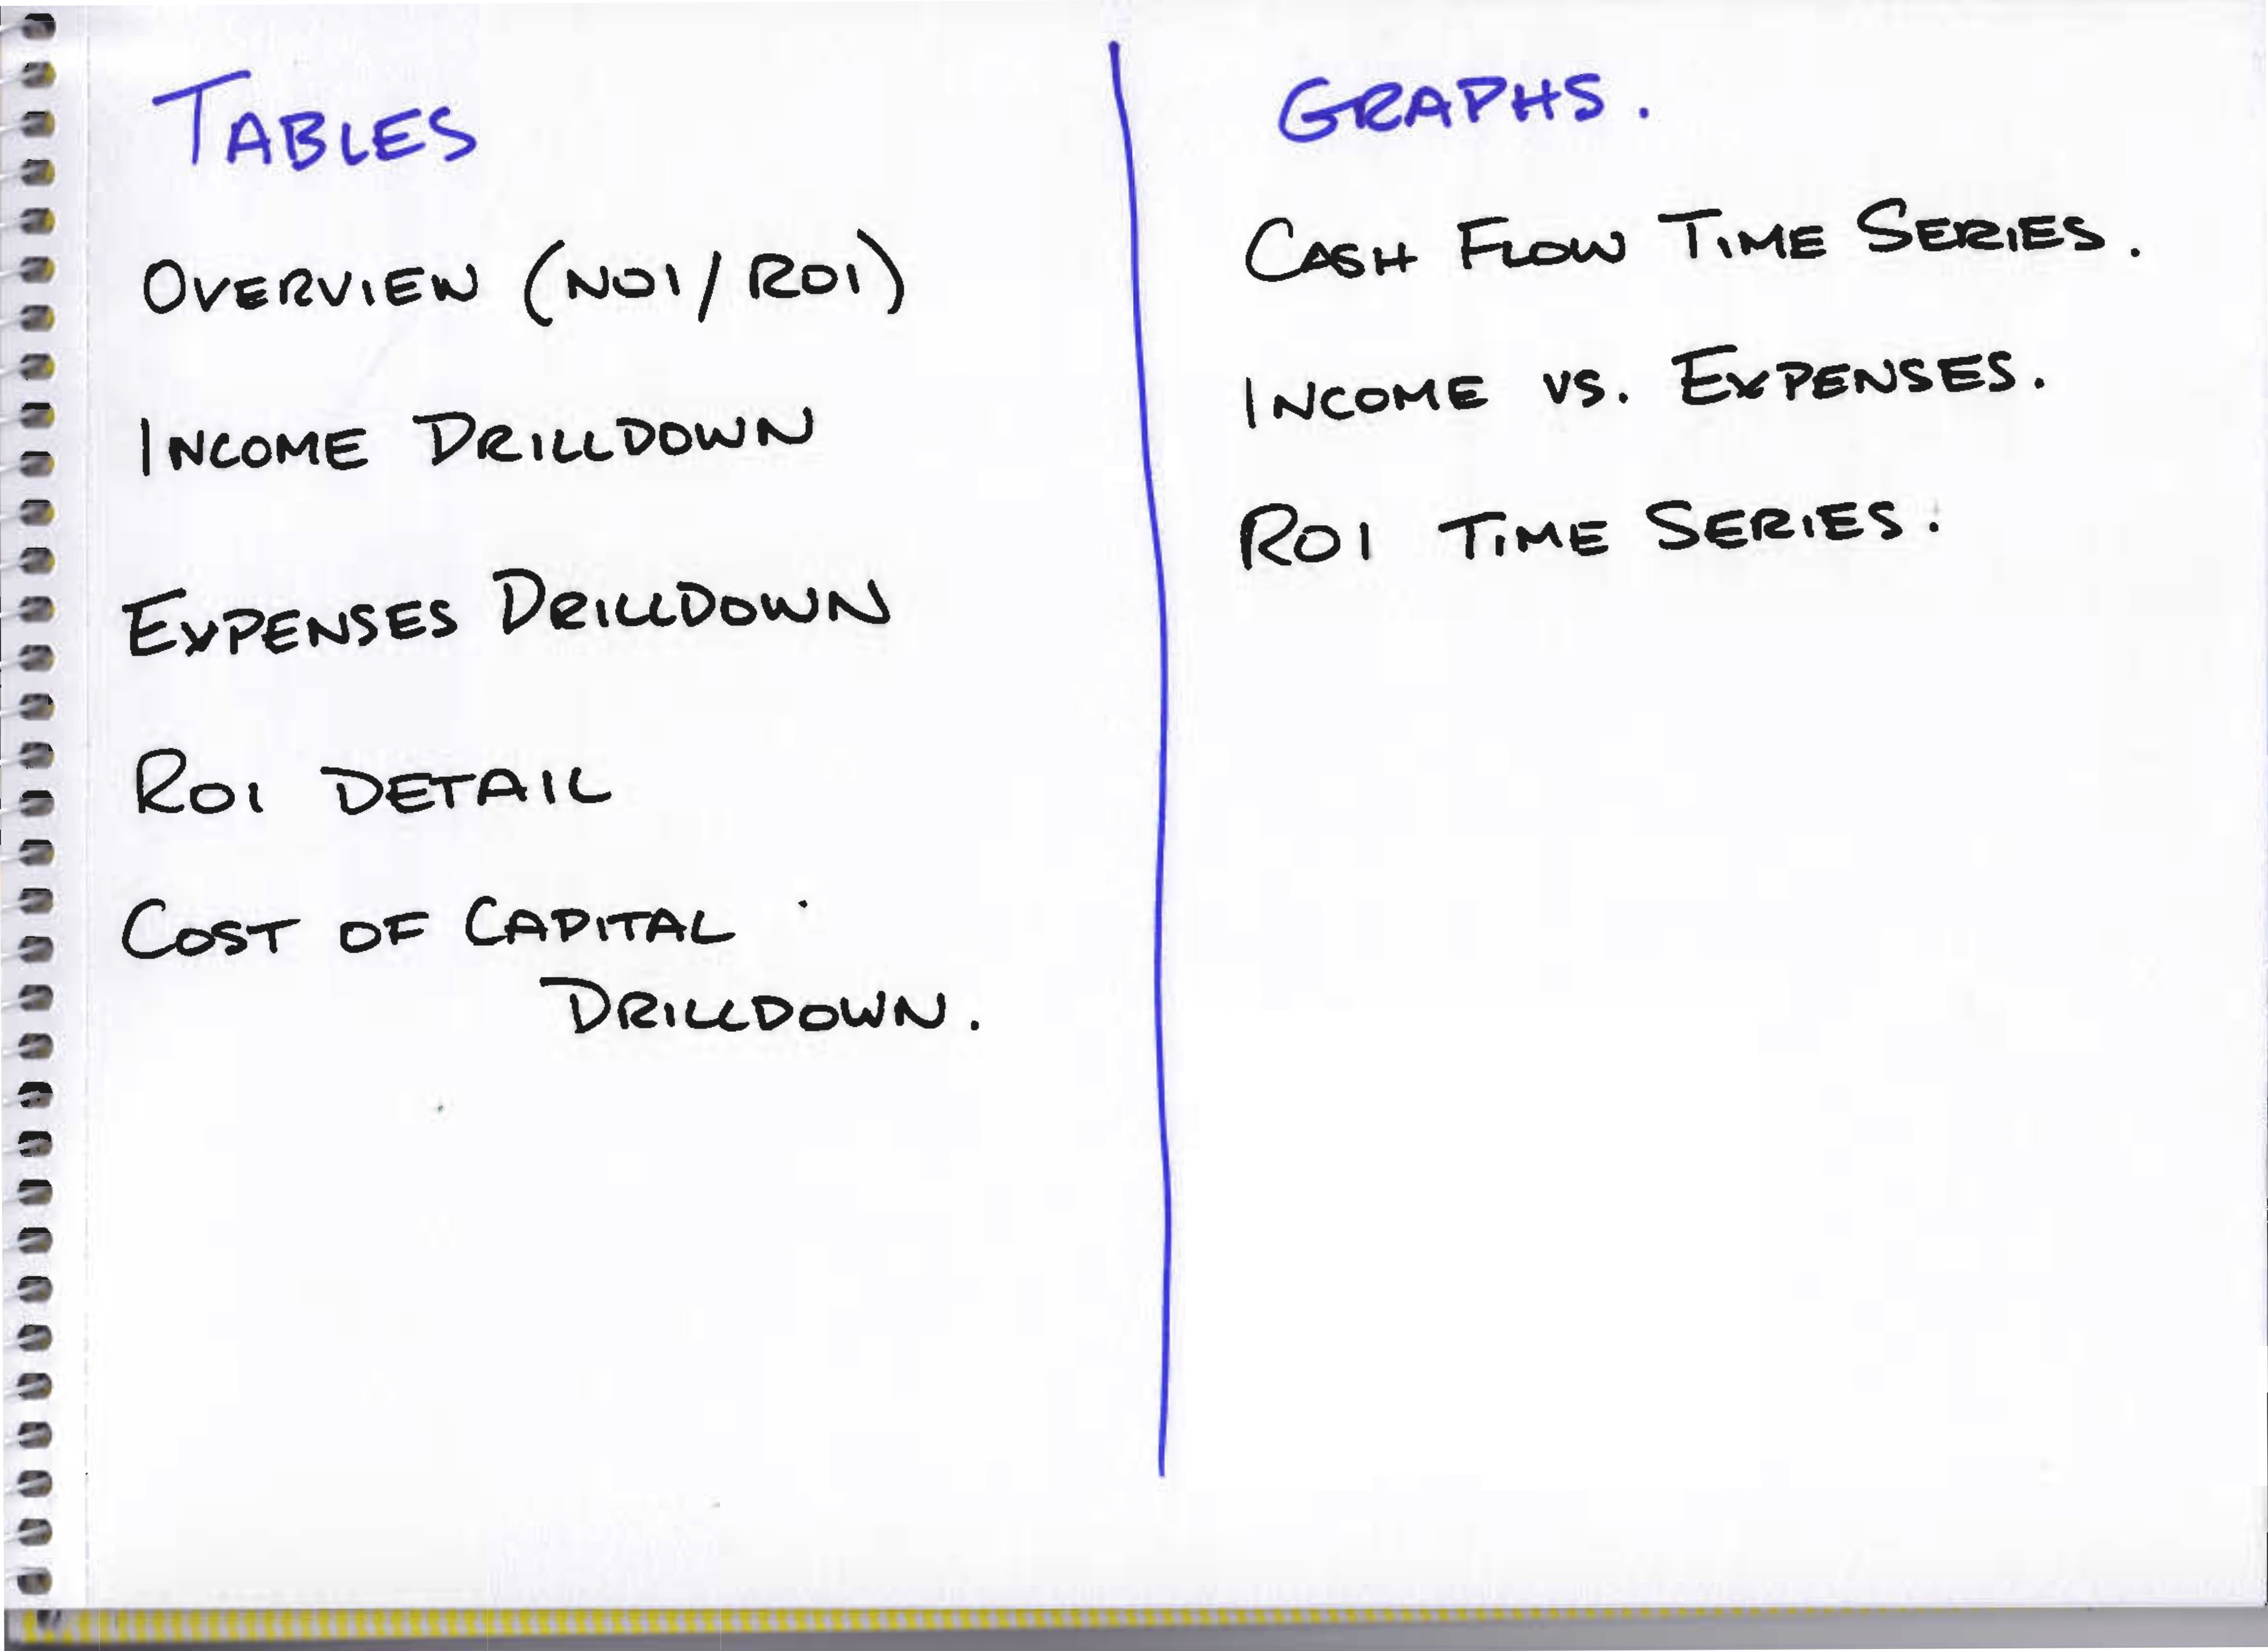 TABLES
OVERVIEW (NOI/ROI)
INCOME DRILLDOWN
EXPENSES DRILLDOWN
ROI DETAIL
COST OF CAPITAL
DRILLDOWN.
GRAPHS.
CASH FLOW TIME SERIES.
INCOME VS. EXPENSES.
ROI TIME SERIES.